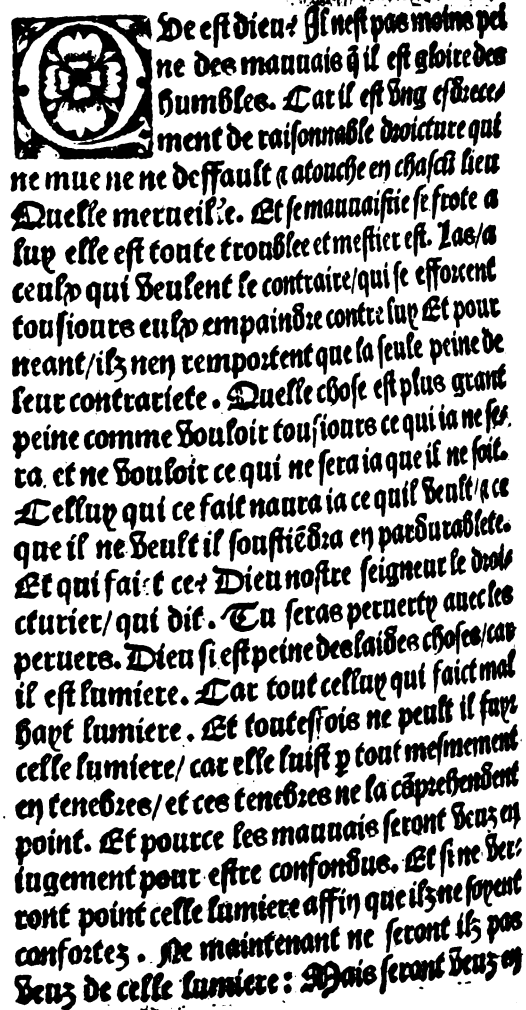 QVe est dieu? Il nest pas moins pei
ne des mauuais q̃ il est gloire des
humbles. Car il est vng esdrece/
ment de raisonnable droicture qui
ne mue ne ne deffault ⁊ atouche en chascũ lieu
Quelle merueille. Et se mauuaistie se frote a
luy elle est toute troublee et mestier est. Las/a
ceulx qui veulent le contraire/qui se efforcent
tousiours eulx empaindre contre luy Et pour
neant/ilz nen remportent que la seule peine de
leur contrariete. Quelle chose est plus grant
peine comme vouloir tousiours ce qui ia ne se/
ra. et ne vouloir ce qui ne sera ia que il ne soit.
Celluy qui ce fait naura ia ce quil veult/⁊ ce
que il ne veult il soustiẽdra en pardurablete.
Et qui faict ce? Dieu nostre seigneur le droi/
cturier/qui dit. Tu seras peruerty auec les
peruers. Dieu si est peine des laides choses/car
il est lumiere. Car tout celluy qui faict mal
hayt lumiere. Et toutesfois ne peult il fuyr
celle lumiere/ car elle luist ꝑ tout mesmement
en tenebres/et ces tenebres ne la cõprehendent
point. Et pource les mauuais seront veuz en
iugement pour estre confondus. Et si ne ver/
ront point celle lumiere affin que ilz ne soyent
confortez. Ne maintenant ne seront ilz pas
veuz de celle lumiere: Mais seront veuz en